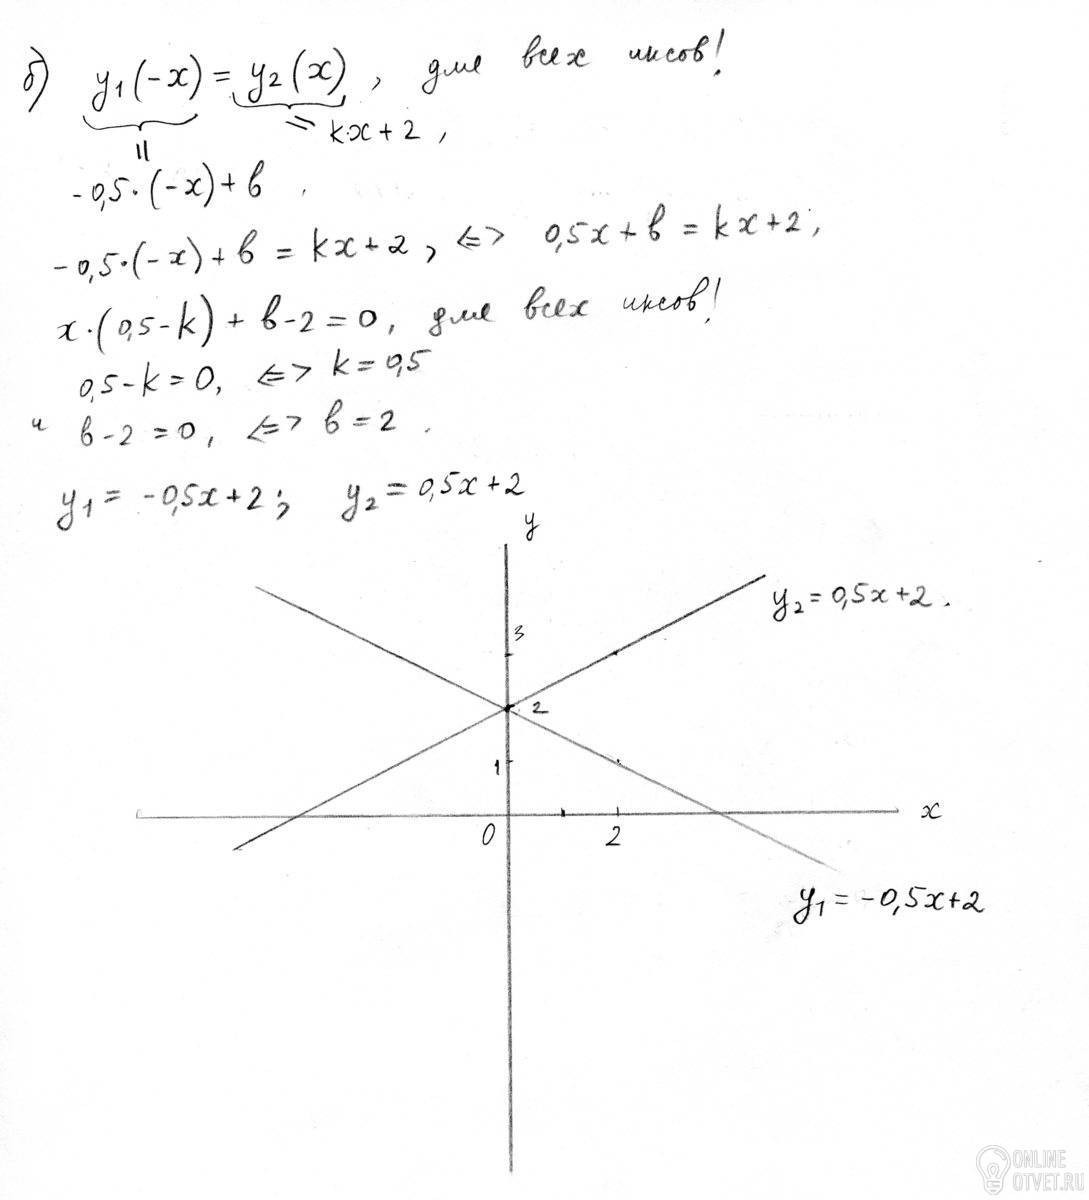 б) y₁(-x) = y₂(x), для всех иксов!
= k·x + 2,
-0,5·(-x) + b
-0,5·(-x) + b = kx + 2, <=> 0,5x + b = kx + 2,
x·(0,5 - k) + b - 2 = 0, для всех иксов!
0,5 - k = 0, <=> k = 0,5
и b - 2 = 0, <=> b = 2.
y₁ = -0,5x + 2; y₂ = 0,5x + 2
y
y₂ = 0,5x + 2.
3
2
1
x
0 2
y₁ = -0,5x + 2
ONLINE
OTVET.RU